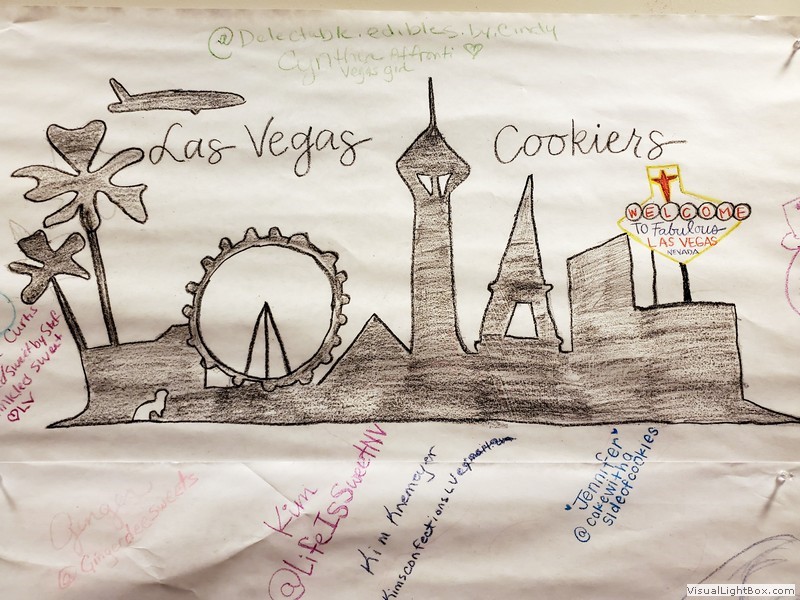 @Delectable.edibles.by.Cindy
Cynthia Affronti
Vegas girl
Las Vegas Cookiers
WELCOME
TO Fabulous
LAS VEGAS
NEVADA
Curtis
Sweet
LV
Ginger
@Gingerdeesweets
Kim
@LifeIsSweetNV
Kim Knemeyer
Jennifer
@cakewitha
sideofcookies
VisualLightBox.com